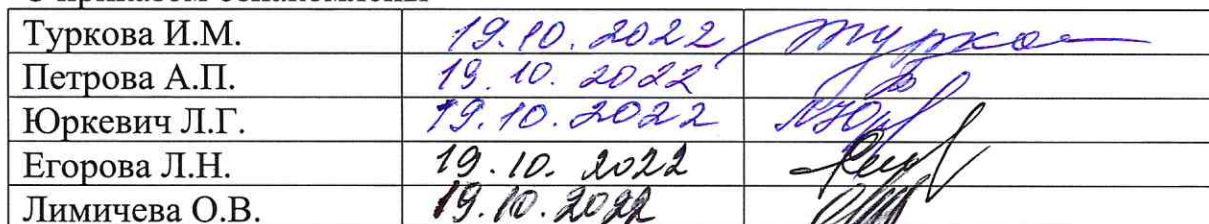 С приказом ознакомлены
Туркова И.М. 19.10.2022 Турко
Петрова А.П. 19.10.2022
Юркевич Л.Г. 19.10.2022
Егорова Л.Н. 19.10.2022
Лимичева О.В. 19.10.2022